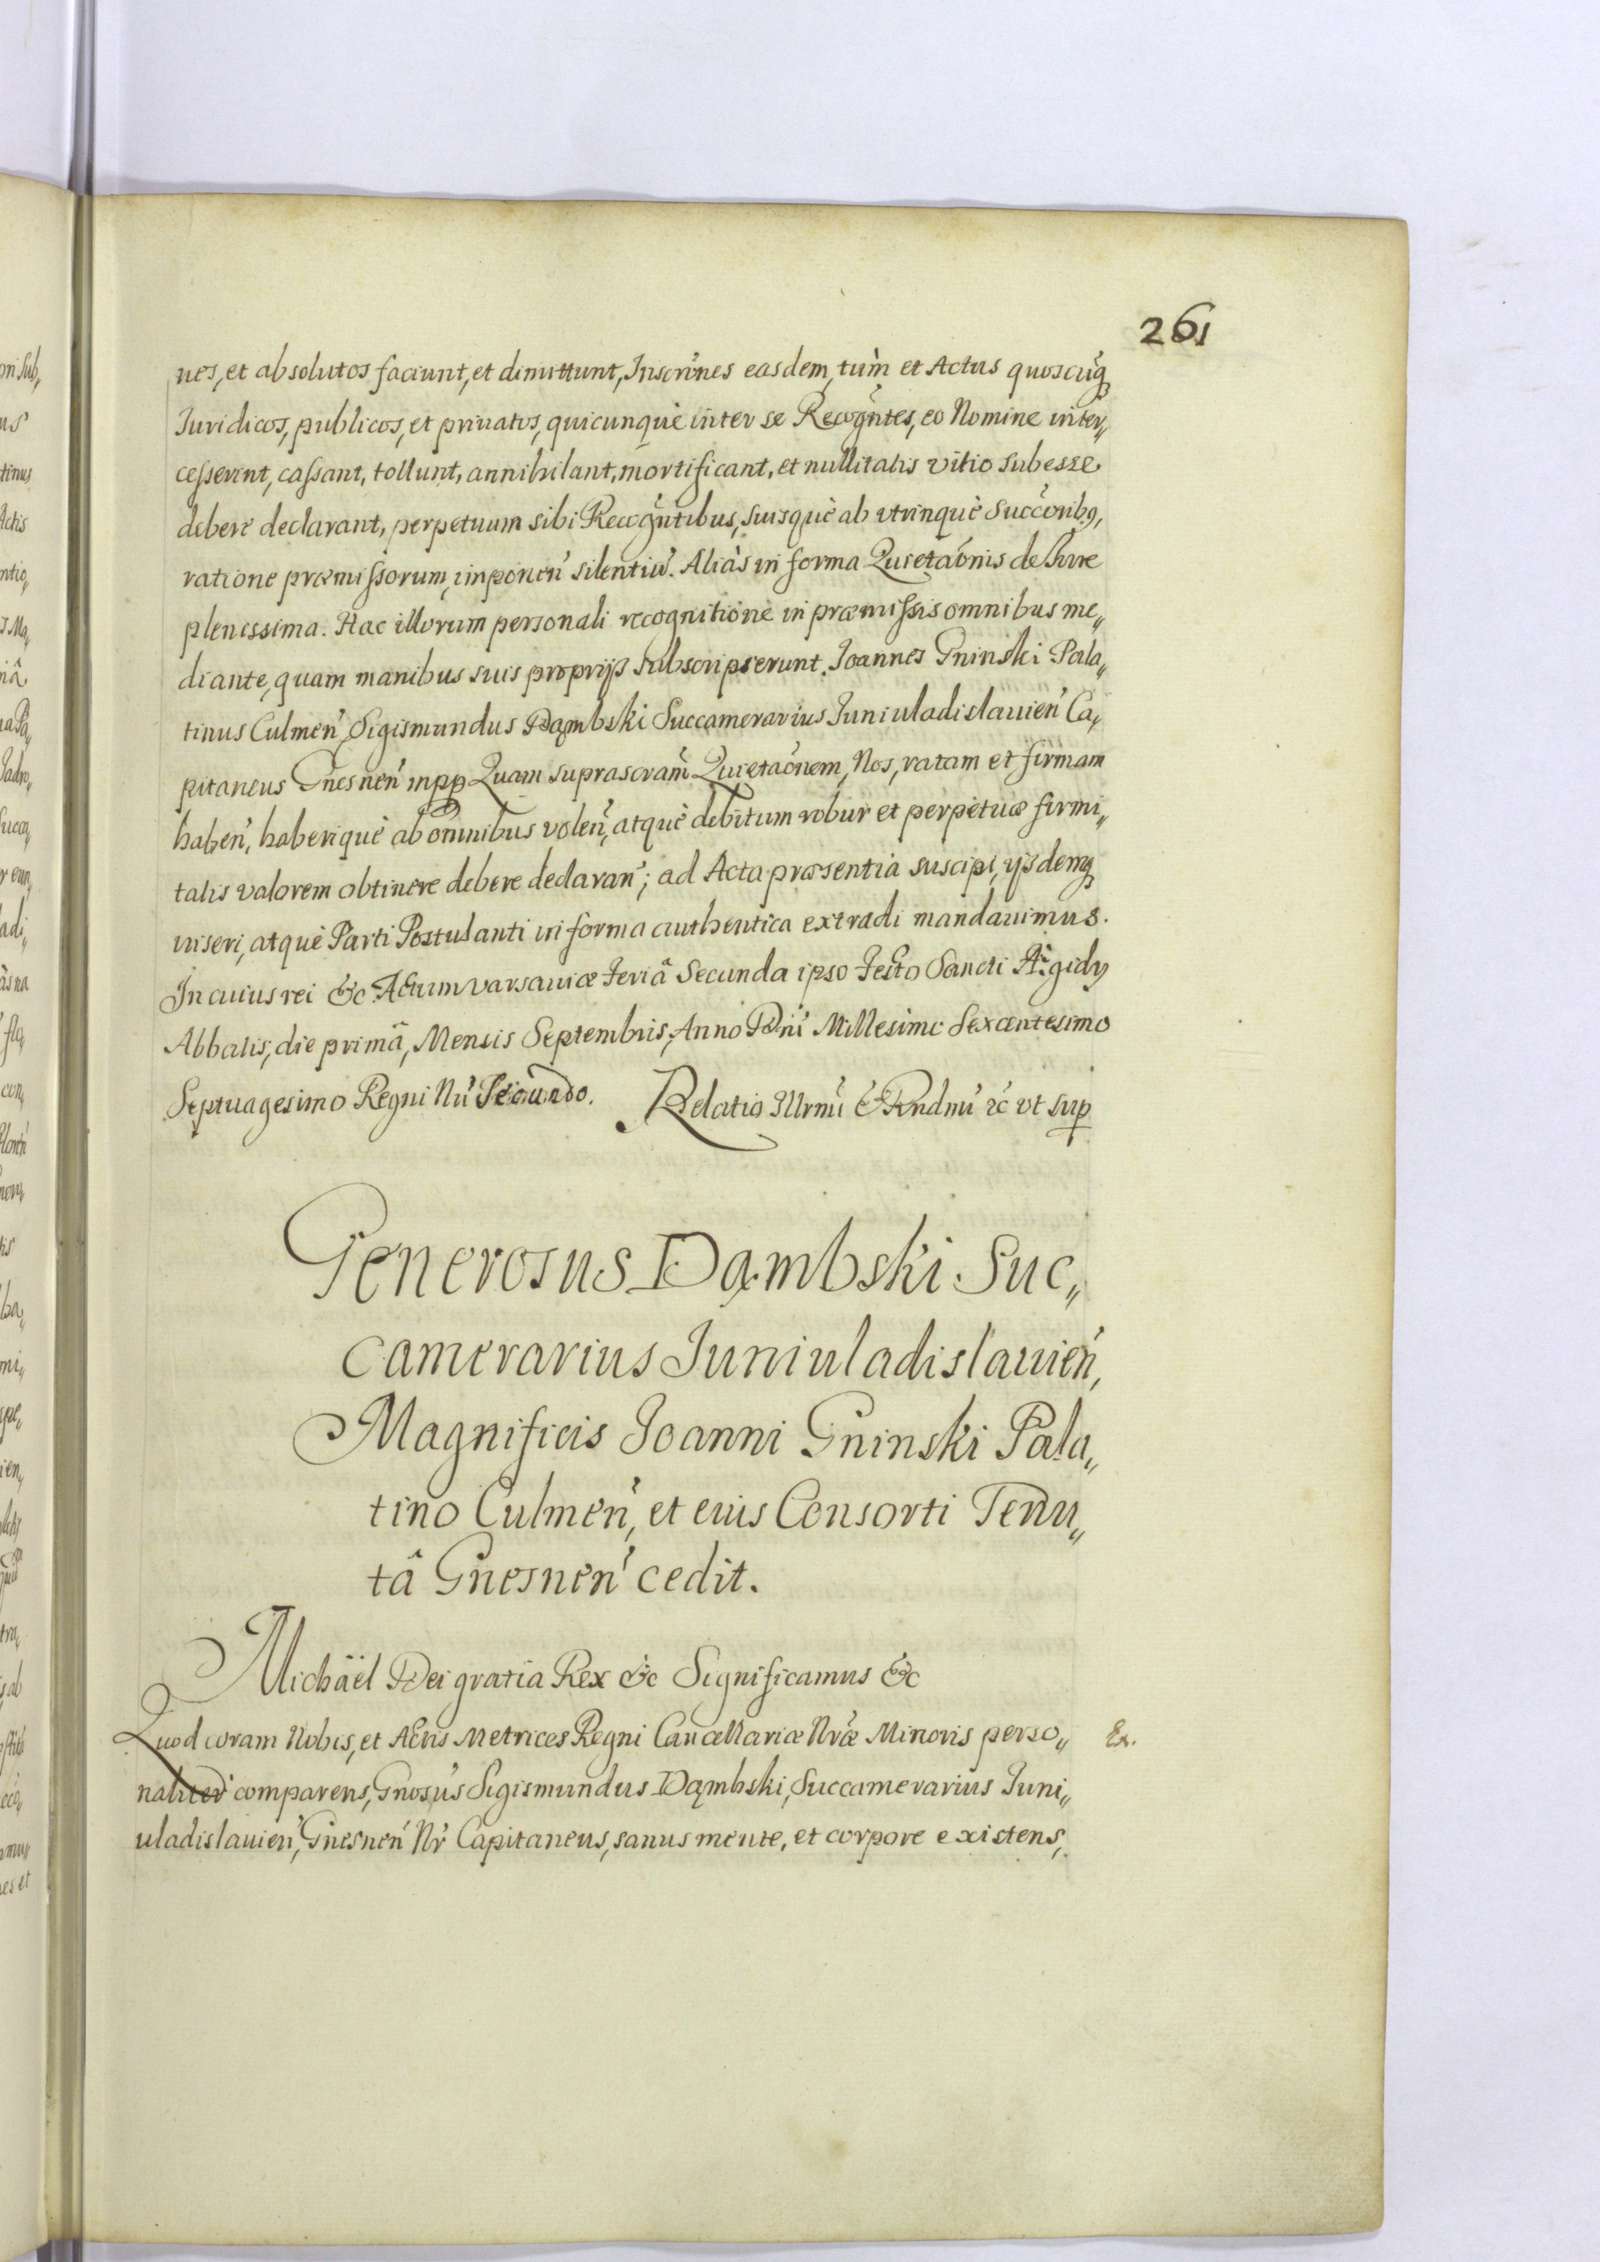 261
ues, et absolutos faciunt, et dimittunt, Inscri͠nes easdem, tùm et Actus quoscu͠q
Juridicos, publicos, et priuatos, quicunquè inter se Recogn͠tes, eo Nomine inter„
cesserint, cassant, tollunt, annihilant, mortificant, et nullitatis vitio subesse
debere declarant, perpetuum sibi Recogn͠tibus, suisquè ab vtrinquè Succ͠orib9,
ratione præmissorum, imponen͠ silentiu͠. Aliàs in forma Quieta͠onis de Iure
plenissima. Hac illorum personali recognitione in præmissis omnibus me„
diante, quam manibus suis proprijs subscripserunt. Joannes Gninski Pala„
tinus Culmen͠, Sigismundus Dąmbski Succamerarius Juniuladislauien͠ Ca„
pitaneus Gnesnen͠ mpp Quam suprascram͠ Quieta͠onem, Nos, ratam et firmam
haben͠, haberiquè ab omnibus volen͠, atquè debitum robur et perpetuæ firmi„
tatis valorem obtinere debere declaran͠; ad Acta præsentia suscipi, ijsdemq
inseri, atquè Parti Postulanti in forma authentica extradi mandauimus.
In cuius rei &c Actum Varsauiæ Feriâ Secunda ipso Festo Sancti Ægidij
Abbatis, die primâ, Mensis Septembris, Anno Dn͠i Millesimo Sexcentesimo
Septuagesimo Regni N͠ri Secundo. Relatio Illrmi͠ & Rndmi͠ &c vt sup
Generosus Dąmbski Suc„
camerarius Juniuladislauien͠,
Magnificis Joanni Gninski Pala„
tino Culmen͠, et eius Consorti Tenu„
tâ Gnesnen͠ cedit.
Michäel Dei gratia Rex &c Significamus &c
Quod coram Nobis, et Actis Metrices Regni Cancellariæ Nr͠æ Minoris perso„ Ex.
naliter comparens, Gnosu͠s Sigismundus Dąmbski, Succamerarius Juni„
uladislauien͠, Gnesnen͠ Nr͠ Capitaneus, sanus mente, et corpore existens,